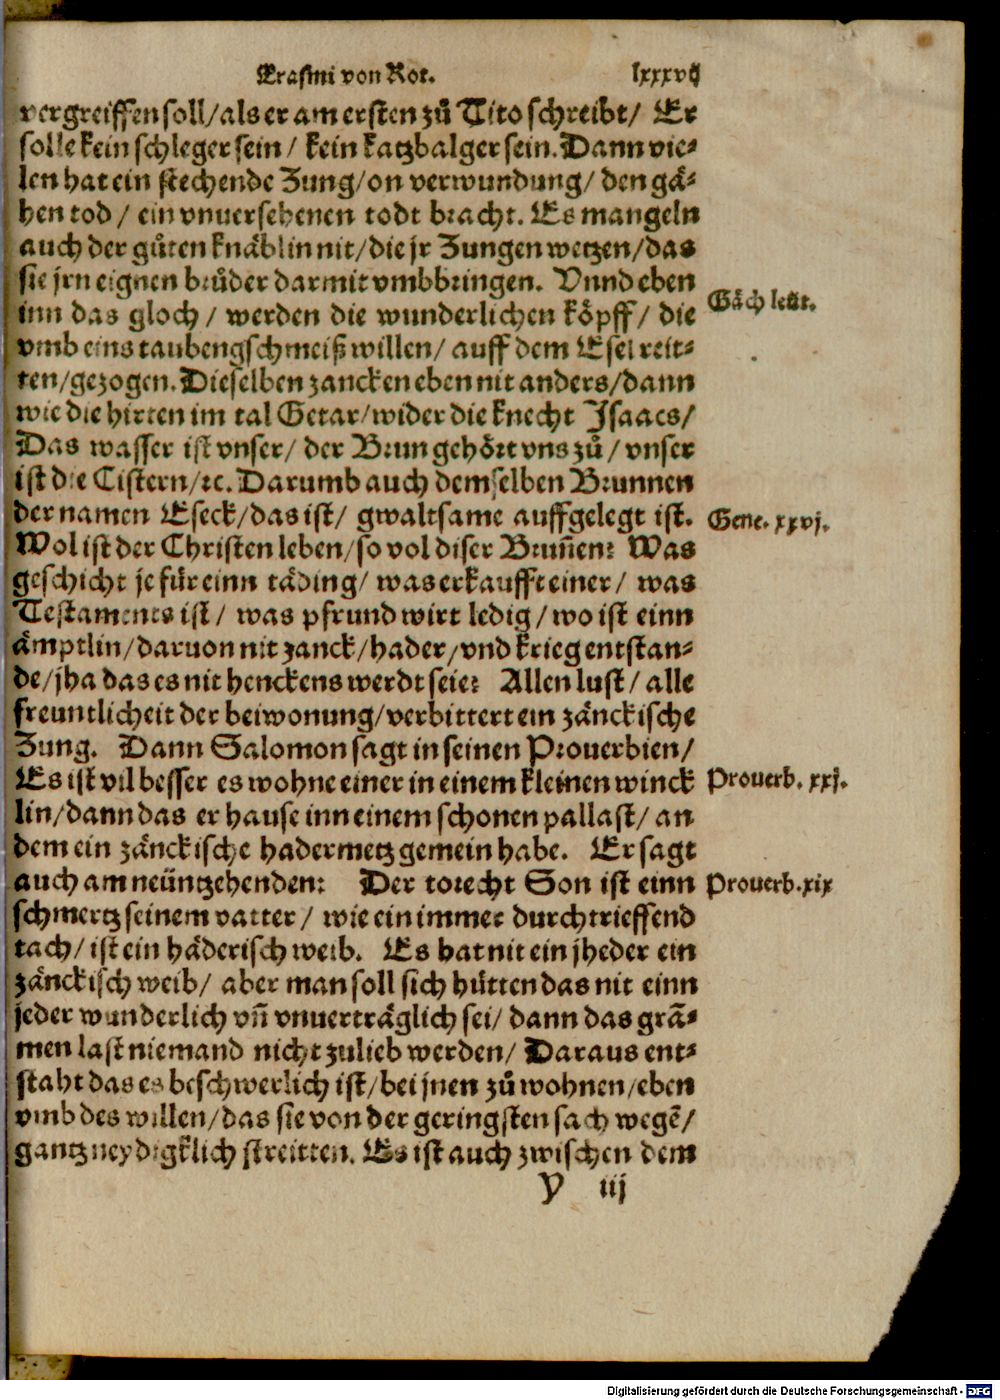 Erasmi von Rot. lxxxvij
vergreiffen soll/als er am ersten zů Tito schreibt/ Er
solle kein schleger sein/ kein katzbalger sein. Dann vie⸗
len hat ein stechende Zung/on verwundung/ den gä⸗
hen tod/ ein vnuersehenen todt bracht. Es mangeln
auch der gůten knäblin nit/die jr Zungen wetzen/das
sie jrn eignen brůder darmit vmbbringen. Vnnd eben
Gäch leüt.
inn das gloch/ werden die wunderlichen köpff/ die
vmb eins taubengschmeiß willen/ auff dem Esel reit⸗
ten/gezogen. Dieselben zancken eben nit anders/dann
wie die hirten im tal Getar/wider die knecht Jsaacs/
Das wasser ist vnser/ der Brun gehört vns zů/ vnser
ist die Cistern/ꝛc. Darumb auch demselben Brunnen
der namen Eseck/das ist/ gwaltsame auffgelegt ist.
Gene. xxvj.
Wol ist der Christen leben/so vol diser Bruñen? Was
geschicht je für einn täding/ was erkaufft einer/ was
Testaments ist/ was pfrund wirt ledig/wo ist einn
ämptlin/daruon nit zanck/hader/vnd krieg entstan⸗
de/jha das es nit henckens werdt seie? Allen lust/ alle
freuntlicheit der beiwonung/verbittert ein zänckische
Zung. Dann Salomon sagt in seinen Prouerbien/
Es ist vil besser es wohne einer in einem kleinen winck
Prouerb. xxj.
lin/dann das er hause inn einem schonen pallast/ an
dem ein zänckische hadermetz gemein habe. Er sagt
auch am neüntzehenden: Der torecht Son ist einn
Prouerb. xix
schmertz seinem vatter/ wie ein immer durchtrieffend
tach/ist ein häderisch weib. Es hat nit ein jheder ein
zänckisch weib/ aber man soll sich hütten das nit einn
jeder wunderlich vñ vnuerträglich sei/ dann das grã⸗
men last niemand nicht zulieb werden/ Daraus ent⸗
staht das es beschwerlich ist/bei jnen zů wohnen/eben
vmb des willen/das sie von der geringsten sach wegẽ/
gantz neydigklich streitten. Es ist auch zwischen dem
Y iij
Digitalisierung gefördert durch die Deutsche Forschungsgemeinschaft - DFG